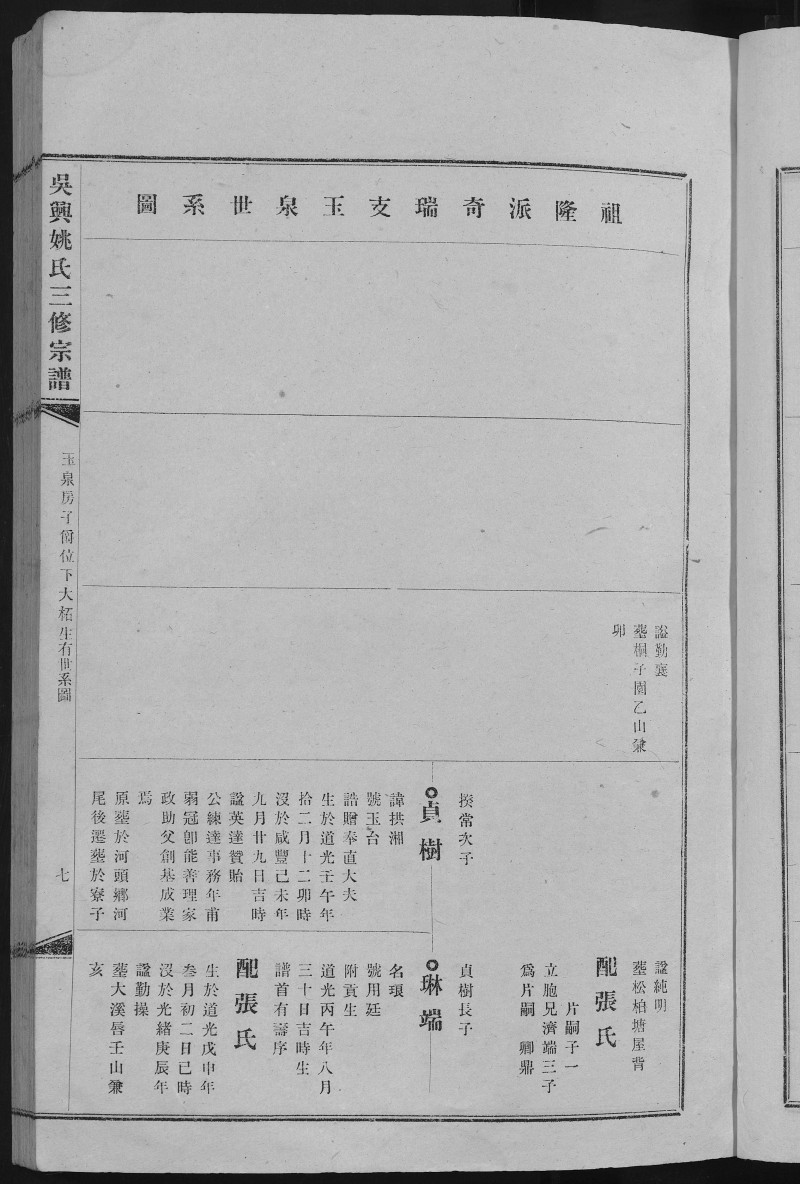 祖隆派奇瑞支玉泉世系圖
諡勤襄
塟桐子園乙山兼
卯
揆常次子
貞樹
諱拱湘
號玉台
誥贈奉直大夫
生於道光壬午年
拾二月十二卯時
沒於咸豐己未年
九月廿九日吉時
諡英達贊貽
公練達事務年甫
弱冠卽能善理家
政助父創基成業
焉
原塟於河頭鄉河
尾後遷塟於寮子
諡純明
塟松柏塘屋背
配張氏
片嗣子一
立胞兄濟端三子
爲片嗣 卿鼎
貞樹長子
琳端
名琅
號用廷
附貢生
道光丙午年八月
三十日吉時生
譜首有壽序
配張氏
生於道光戊申年
叁月初二日巳時
沒於光緒庚辰年
諡勤操
塟大溪唇壬山兼
亥
吳興姚氏三修宗譜
玉泉房子尙位下大柘生有世系圖
七